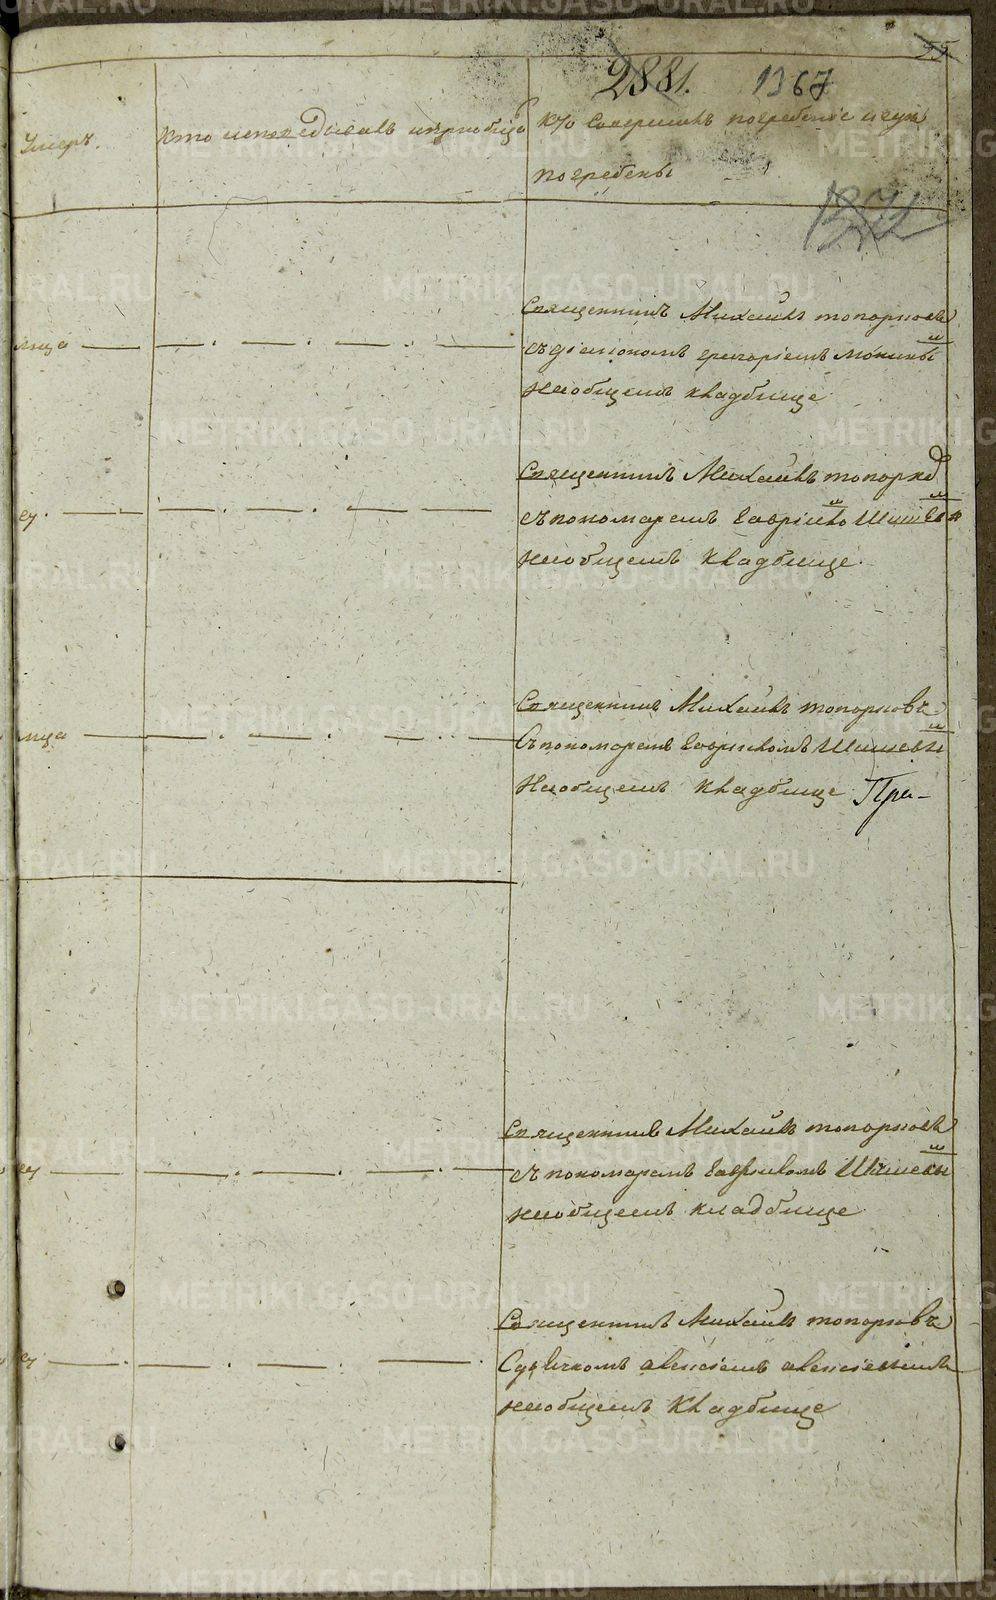 2881. 1367
Умеръ.
Кто исповедывалъ и приобщ
Кто Совершилъ погребение и где
погребены
Священникъ Михаилъ топорковъ
съ дiакономъ григорiемъ
на общемъ кладбище
Священникъ Михаилъ топорков
съ пономаремъ Гаврiило
на общемъ кладбище
Священникъ Михаилъ топорковъ
Съ пономаремъ Гавриломъ
На общемъ кладбище Пра-
Священникъ Михаилъ топорковъ
съ пономаремъ Гавриломъ
на общемъ кладбище
Священникъ Михаилъ топорковъ
алексiемъ алексiевымъ
на общемъ кладбище
METRIKI.GASO-URAL.RU